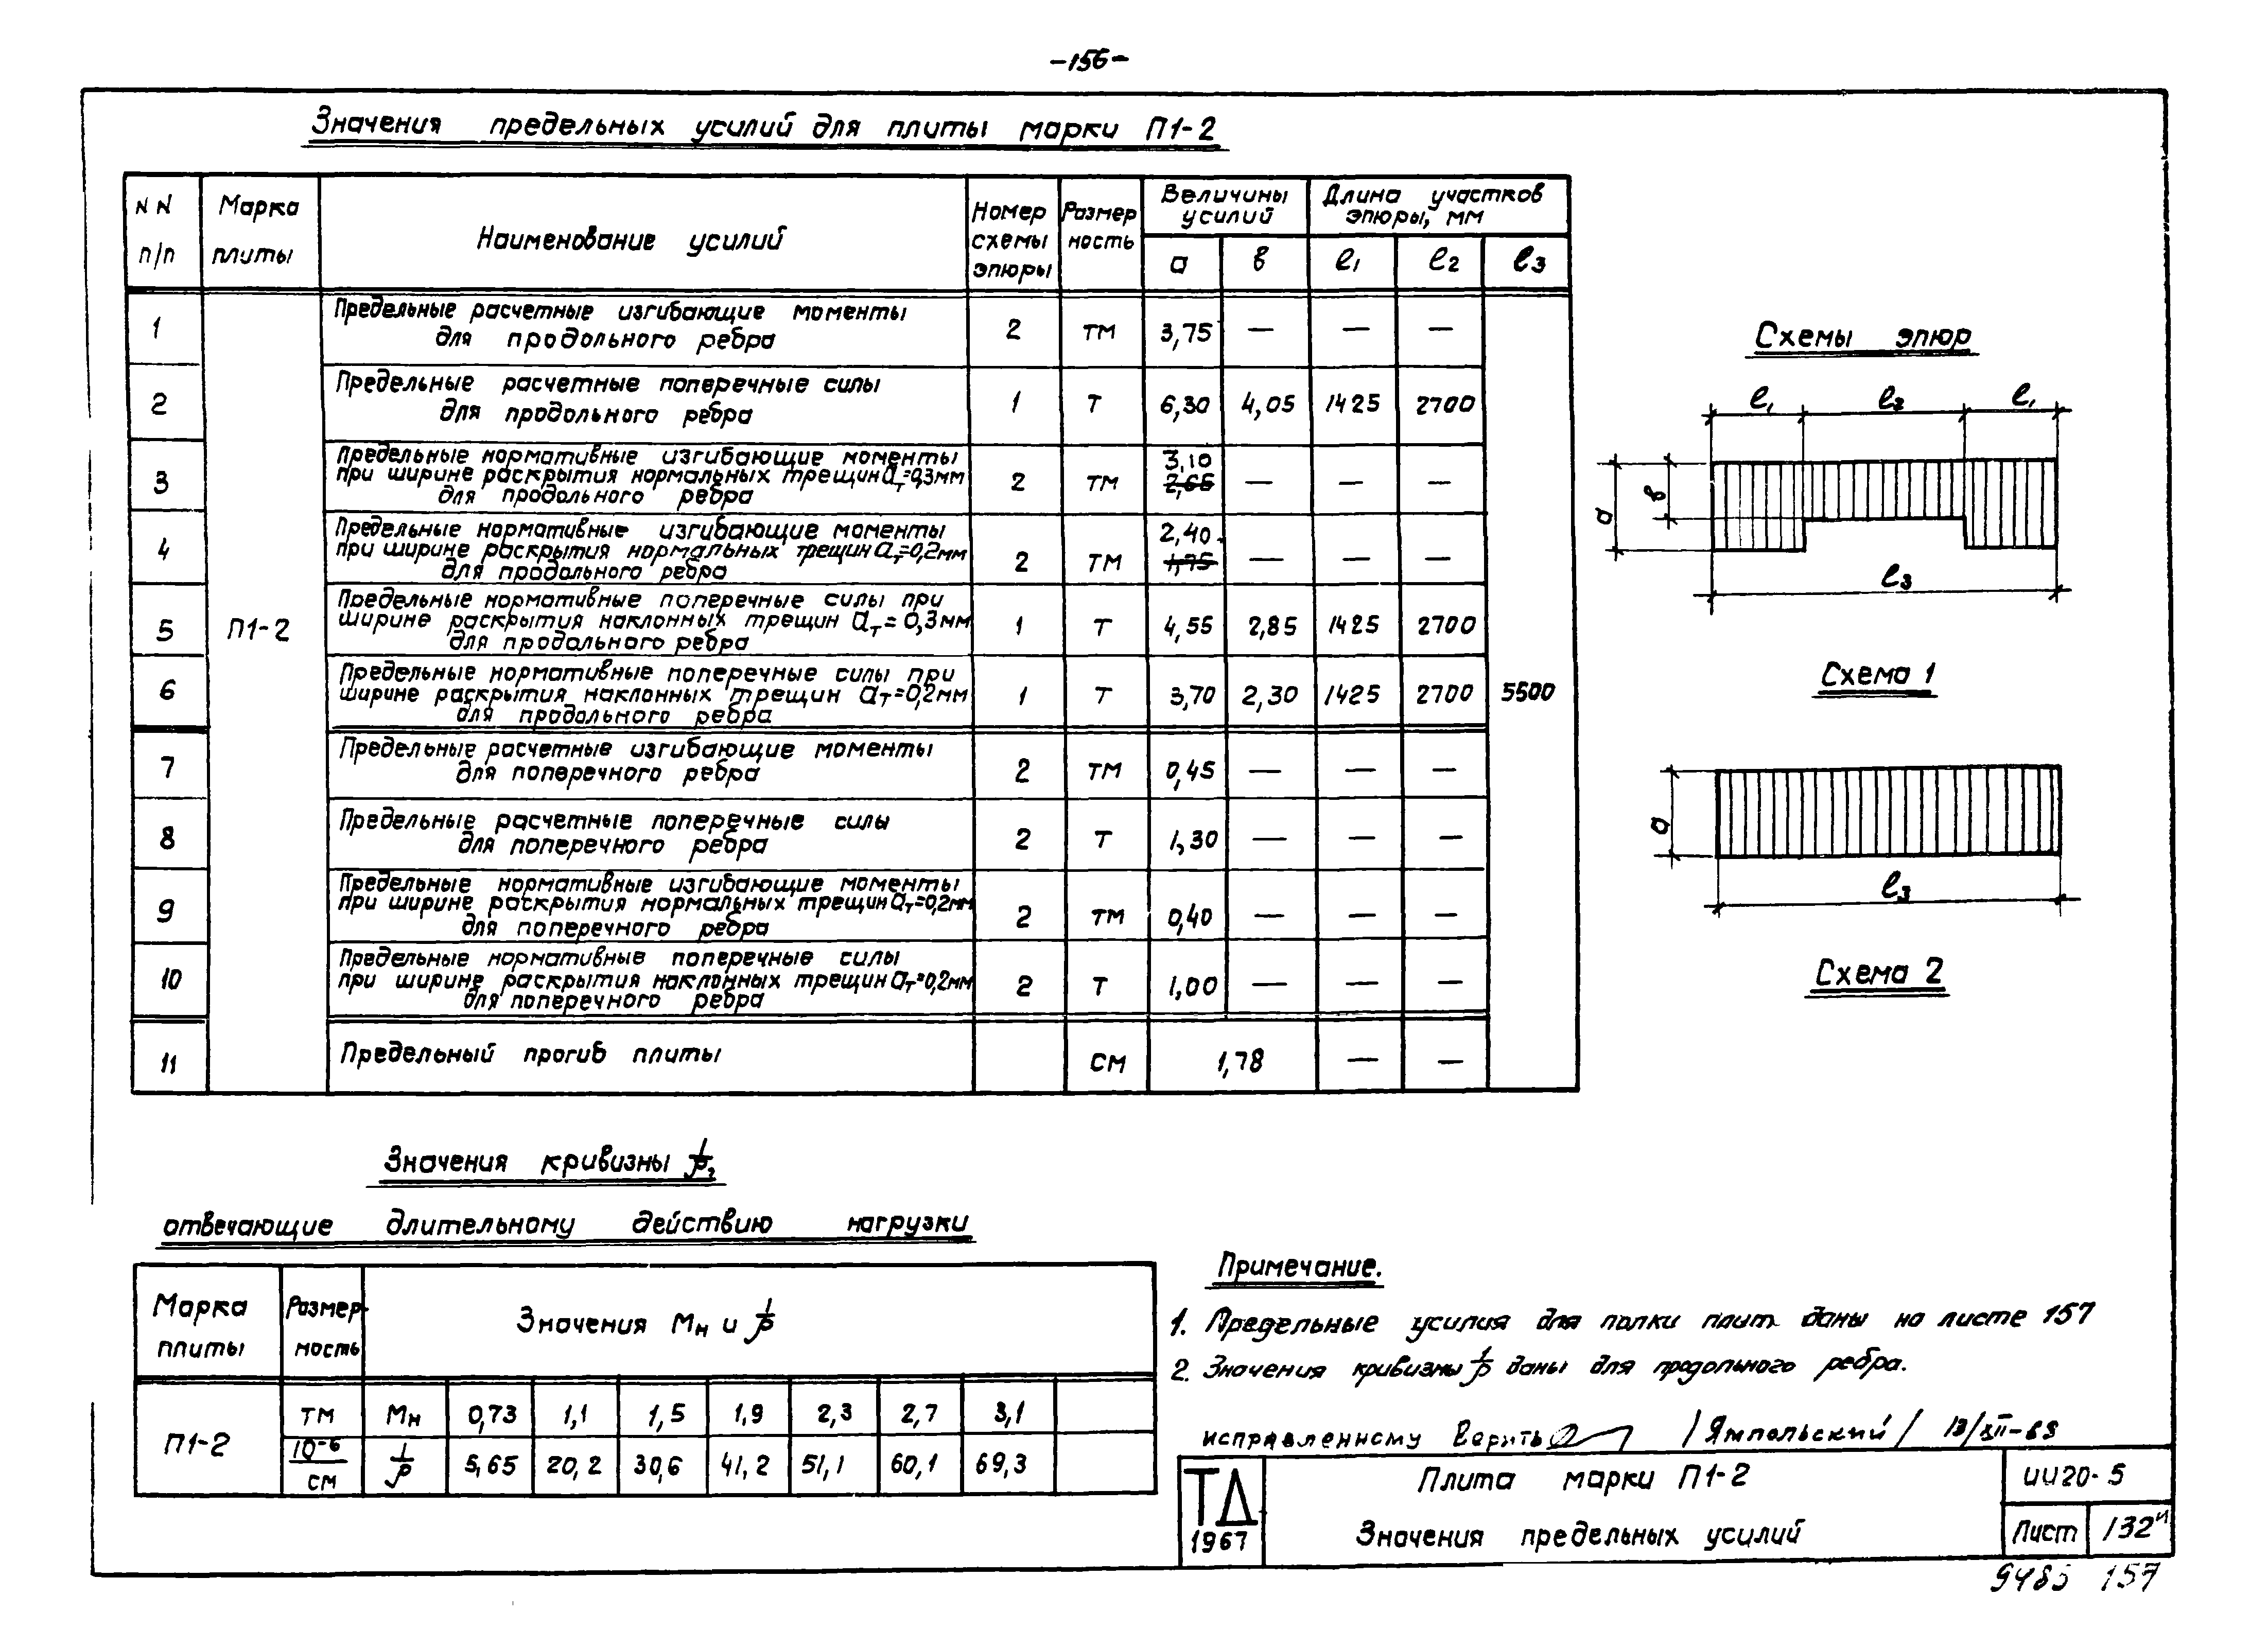 -156-
Значения предельных усилий для плиты марки П1-2
NN п/п
Марка плиты
Наименование усилий
Номер схемы эпюры
Размер ность
Величины усилий
Длина участков эпюры, мм
а в ℓ1 ℓ2 ℓ3
1 Предельные расчетные изгибающие моменты
для продольного ребра 2 тм 3,75 — — —
2 Предельные расчетные поперечные силы
для продольного ребра 1 т 6,30 4,05 1425 2700
3 Предельные нормативные изгибающие моменты
при ширине раскрытия нормальных трещин aт=0,3мм
для продольного ребра 2 тм 3,10 2,65 — — —
4 Предельные нормативные изгибающие моменты
при ширине раскрытия нормальных трещин aт=0,2мм
для продольного ребра 2 тм 2,40 1,75 — — —
5 П1-2 Предельные нормативные поперечные силы при
ширине раскрытия наклонных трещин aт=0,3мм
для продольного ребра 1 т 4,55 2,85 1425 2700
6 Предельные нормативные поперечные силы при
ширине раскрытия наклонных трещин aт=0,2мм
для продольного ребра 1 т 3,70 2,30 1425 2700 5500
7 Предельные расчетные изгибающие моменты
для поперечного ребра 2 тм 0,45 — — —
8 Предельные расчетные поперечные силы
для поперечного ребра 2 т 1,30 — — —
9 Предельные нормативные изгибающие моменты
при ширине раскрытия нормальных трещин aт=0,2мм
для поперечного ребра 2 тм 0,40 — — —
10 Предельные нормативные поперечные силы
при ширине раскрытия наклонных трещин aт=0,2мм
для поперечного ребра 2 т 1,00 — — —
11 Предельный прогиб плиты см 1,78 — —
Схемы эпюр
ℓ1 ℓ2 ℓ1
а в
ℓ3
Схема 1
а
ℓ3
Схема 2
Значения кривизны 1/ρ,
отвечающие длительному действию нагрузки
Марка плиты
Размер- ность
Значения Mн и 1/ρ
П1-2
тм Mн 0,73 1,1 1,5 1,9 2,3 2,7 3,1
10⁻⁶/см 1/ρ 5,65 20,2 30,6 41,2 51,1 60,1 69,3
Примечание.
1. Предельные усилия для полки плит даны на листе 157
2. Значения кривизны 1/ρ даны для продольного ребра.
исправленному верить /Ямпольский/
ТД
1967
Плита марки П1-2
Значения предельных усилий
ИИ20-5
Лист 132и
9485 157